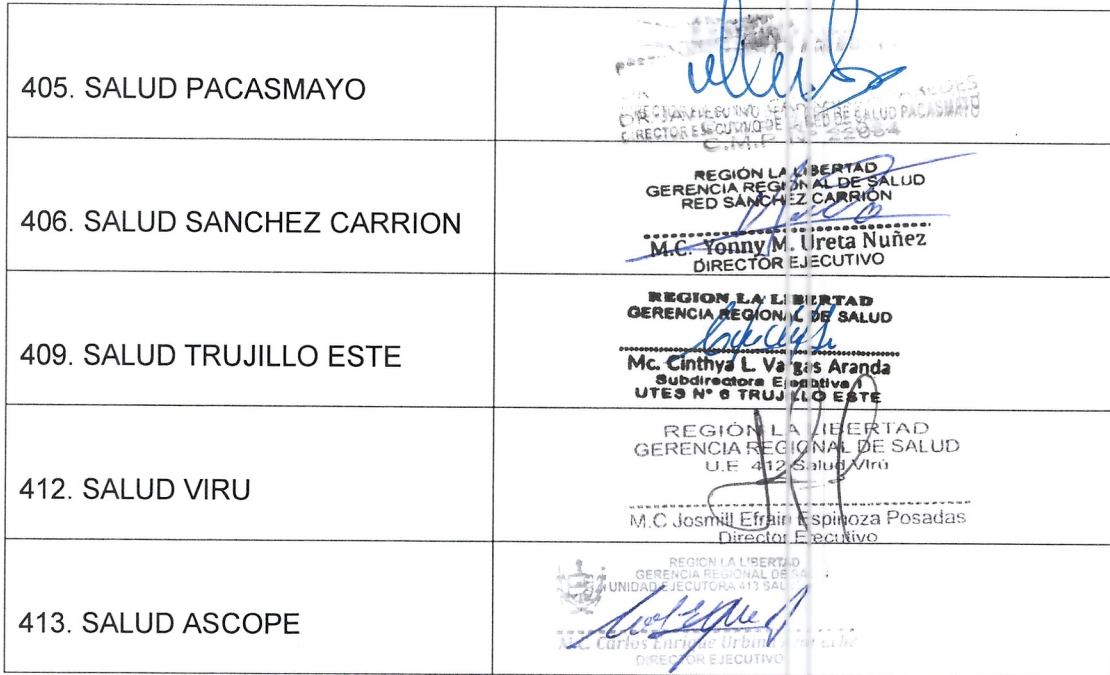 405. SALUD PACASMAYO
DIRECTOR EJECUTIVO DE RED DE SALUD PACASMAYO
C.M.P. Nº 22064
406. SALUD SANCHEZ CARRION
REGIÓN LA LIBERTAD
GERENCIA REGIONAL DE SALUD
RED SÁNCHEZ CARRIÓN
M.C. Yonny M. Ureta Nuñez
DIRECTOR EJECUTIVO
409. SALUD TRUJILLO ESTE
REGION LA LIBERTAD
GERENCIA REGIONAL DE SALUD
Mc. Cinthya L. Vargas Aranda
Subdirectora Ejecutiva I
UTES N° 6 TRUJILLO ESTE
412. SALUD VIRU
REGIÓN LA LIBERTAD
GERENCIA REGIONAL DE SALUD
U.E 412 Salud Virú
M.C Josmill Efrain Espinoza Posadas
Director Ejecutivo
413. SALUD ASCOPE
REGION LA LIBERTAD
GERENCIA REGIONAL DE SA
UNIDAD EJECUTORA 413 SAL
M.C. Carlos Enrique Urbina
DIRECTOR EJECUTIVO